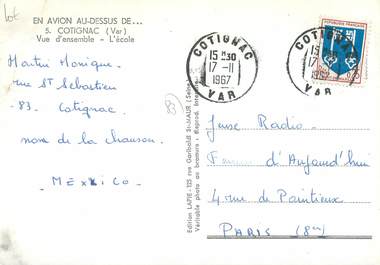 lot
EN AVION AU-DESSUS DE...
5. COTIGNAC (Var)
Vue d'ensemble - L'école
Martin Monique.
rue St Sébastien
-83- Cotignac.
nom de la chanson.
- MEXICO-
83
Edition LAPIE-125 rue Garibaldi St-MAUR (Seine)
Véritable photo au bromure - Reprod. Interdite
COTIGNAC
15 H30
17 -11
1967
VAR
COTIGNAC
15
17 -11
1967
VAR
REPUBLIQUE FRANÇAISE
Radio.
d'Aujourd'hui
4 rue de
PARIS (8e)